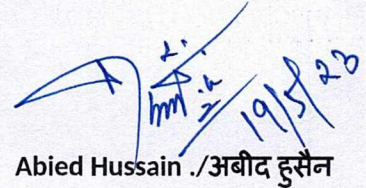 19/5/23
Abied Hussain ./अबीद हुसैन